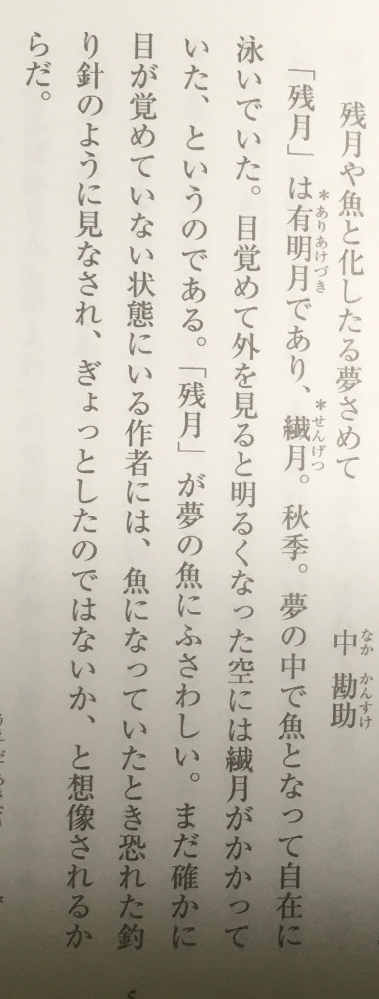 残月や魚と化したる夢さめて
中 勘助
なか かんすけ
「残月」は有明月であり、繊月。秋季。夢の中で魚となって自在に
*ありあけづき *せんげつ
泳いでいた。目覚めて外を見ると明るくなった空には繊月がかかって
いた、というのである。「残月」が夢の魚にふさわしい。まだ確かに
目が覚めていない状態にいる作者には、魚になっていたとき恐れた釣
り針のように見なされ、ぎょっとしたのではないか、と想像されるか
らだ。